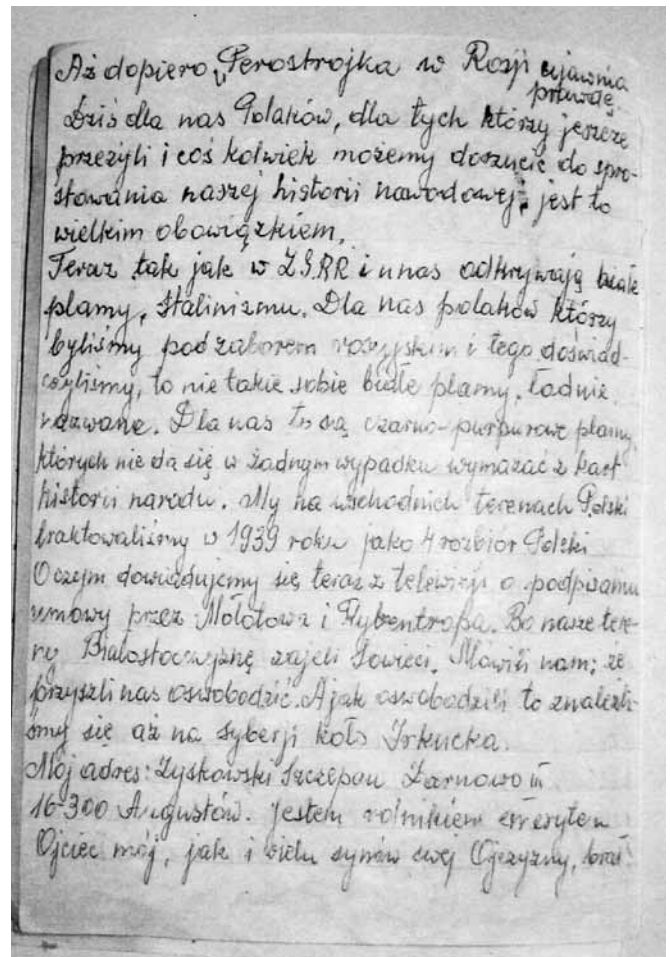 Aż dopiero Perostrojka w Rosji ujawnia
prawdę.
Dziś dla nas Polaków, dla tych którzy jeszcze
przeżyli i coś kolwiek możemy dorzucić do spro-
stowania naszej historii narodowej, jest to
wielkim obowiązkiem.
Teraz tak jak w ZSRR i unas odkrywają białe
plamy, Stalinizmu. Dla nas polaków którzy
byliśmy pod zaborem rosyjskim i tego doświad-
czyliśmy, to nie takie sobie białe plamy, ładnie
nazwane. Dla nas to są czarno-purpurowe plamy,
których nie da się w żadnym wypadku wymazać z kart
historii narodu. My na wschodnich terenach Polski
traktowaliśmy w 1939 roku jako 4 rozbior Polski
O czym dowiadujemy się teraz z telewizji o podpisaniu
umowy przez Mołotowa i Rybentropa. Bo nasze tere-
ny Białostocczyznę zajeli Sowieci. Mowili nam; że
przyszli nas oswobodzić. A jak oswobodzili to znaleźli-
śmy się aż na syberji koło Irkucka.
Mój adres: Zyskowski Szczepan Żarnowo III
16-300 Augustów. Jestem rolnikiem emerytem
Ojciec mój, jak i wielu synów swej Ojczyzny, brał